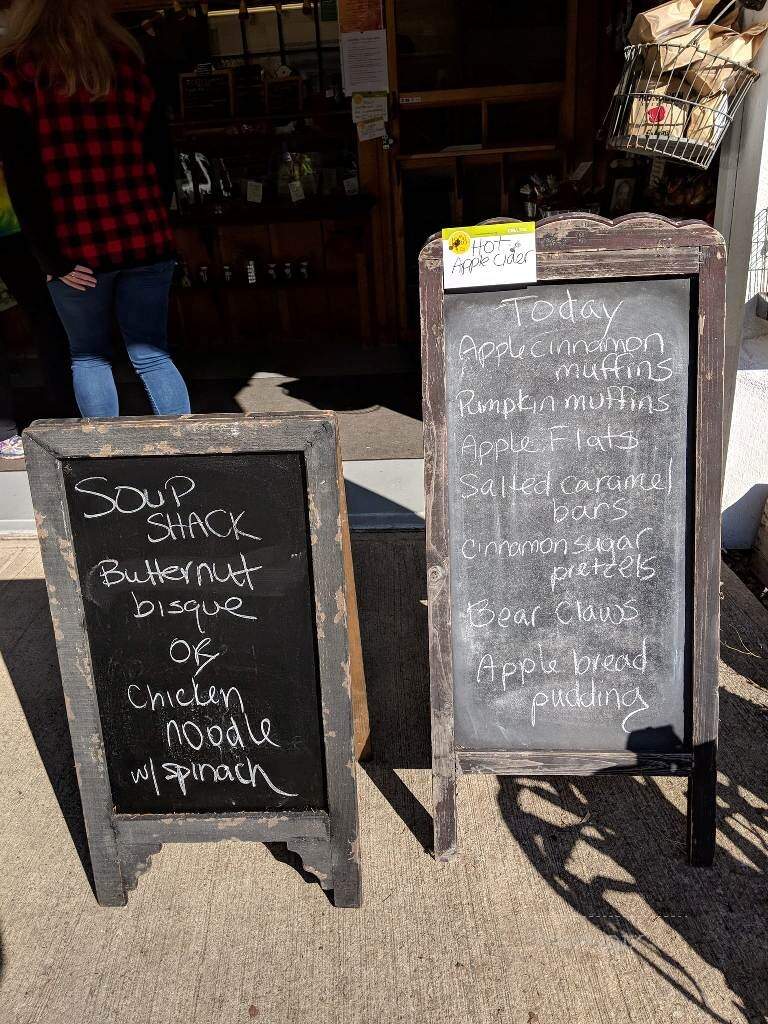 SOUP
SHACK
Butternutt
bisque
OR
Chicken
noodle
w/ spinach
HOT
Apple Cider
Today
Apple cinnamon
muffins
Pumpkin muffins
Apple Flats
Salted caramel
bars
Cinnamon sugar
pretzels
Bear Claws
Apple bread
pudding